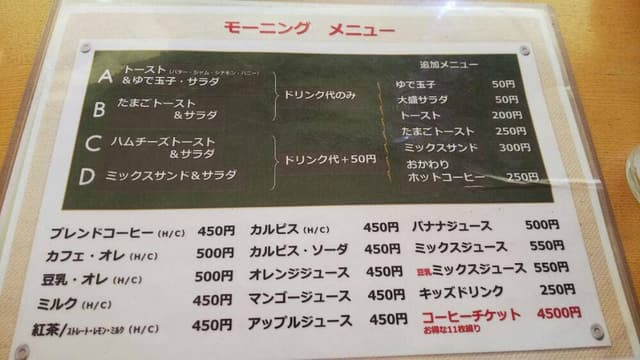 モーニング メニュー
A トースト(バター・ジャム・シナモン・ハニー)
＆ゆで玉子・サラダ
B たまごトースト
＆サラダ
ドリンク代のみ
C ハムチーズトースト
＆サラダ
D ミックスサンド＆サラダ
ドリンク代＋50円
追加メニュー
ゆで玉子 50円
大盛サラダ 50円
トースト 200円
たまごトースト 250円
ミックスサンド 300円
おかわり
ホットコーヒー 250円
ブレンドコーヒー(H/C) 450円
カフェ・オレ(H/C) 500円
豆乳・オレ(H/C) 500円
ミルク(H/C) 450円
紅茶/ストレート・レモン・ミルク(H/C) 450円
カルピス(H/C) 450円
カルピス・ソーダ 450円
オレンジジュース 450円
マンゴージュース 450円
アップルジュース 450円
バナナジュース 500円
ミックスジュース 550円
豆乳ミックスジュース 550円
キッズドリンク 250円
コーヒーチケット 4500円
お得な11枚綴り